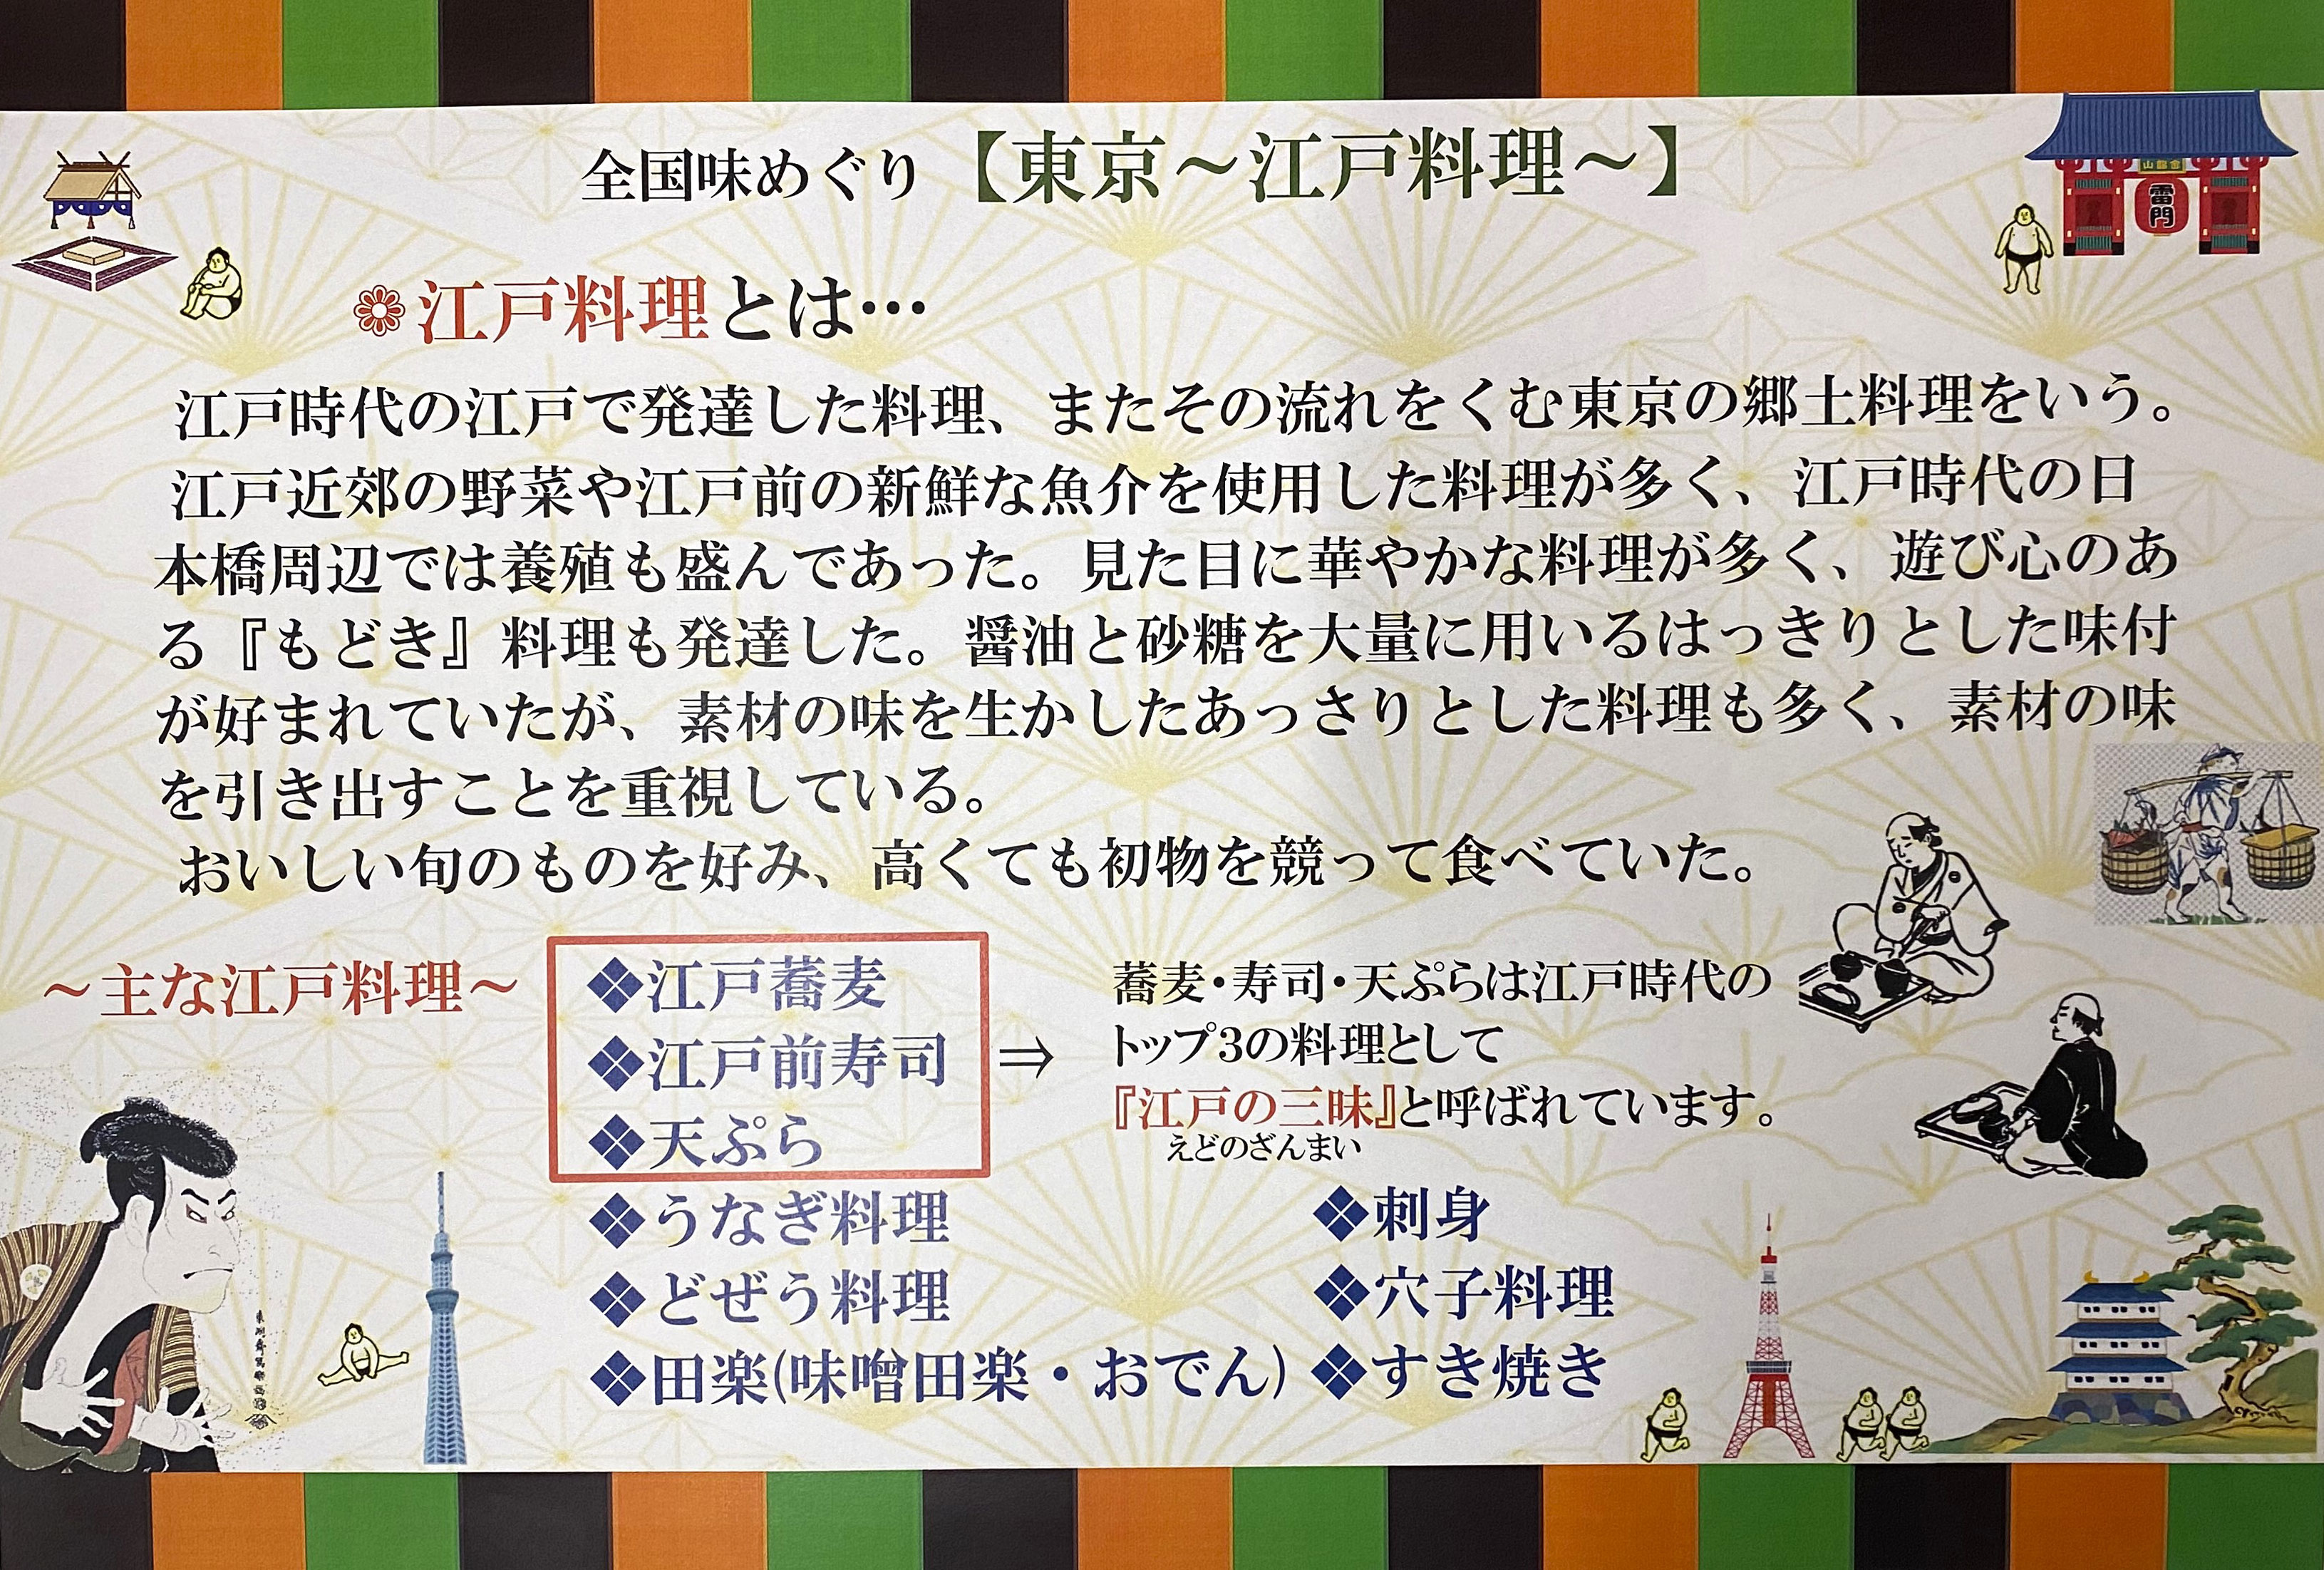 全国味めぐり【東京～江戸料理～】
金龍山
雷門
江戸料理とは…
江戸時代の江戸で発達した料理、またその流れをくむ東京の郷土料理をいう。
江戸近郊の野菜や江戸前の新鮮な魚介を使用した料理が多く、江戸時代の日
本橋周辺では養殖も盛んであった。見た目に華やかな料理が多く、遊び心のあ
る『もどき』料理も発達した。醤油と砂糖を大量に用いるはっきりとした味付
が好まれていたが、素材の味を生かしたあっさりとした料理も多く、素材の味
を引き出すことを重視している。
おいしい旬のものを好み、高くても初物を競って食べていた。
～主な江戸料理～
❖江戸蕎麦
❖江戸前寿司
❖天ぷら
⇒
蕎麦・寿司・天ぷらは江戸時代の
トップ3の料理として
『江戸の三昧』と呼ばれています。
えどのざんまい
❖うなぎ料理
❖どぜう料理
❖田楽(味噌田楽・おでん)
❖刺身
❖穴子料理
❖すき焼き
東洲斎写楽画